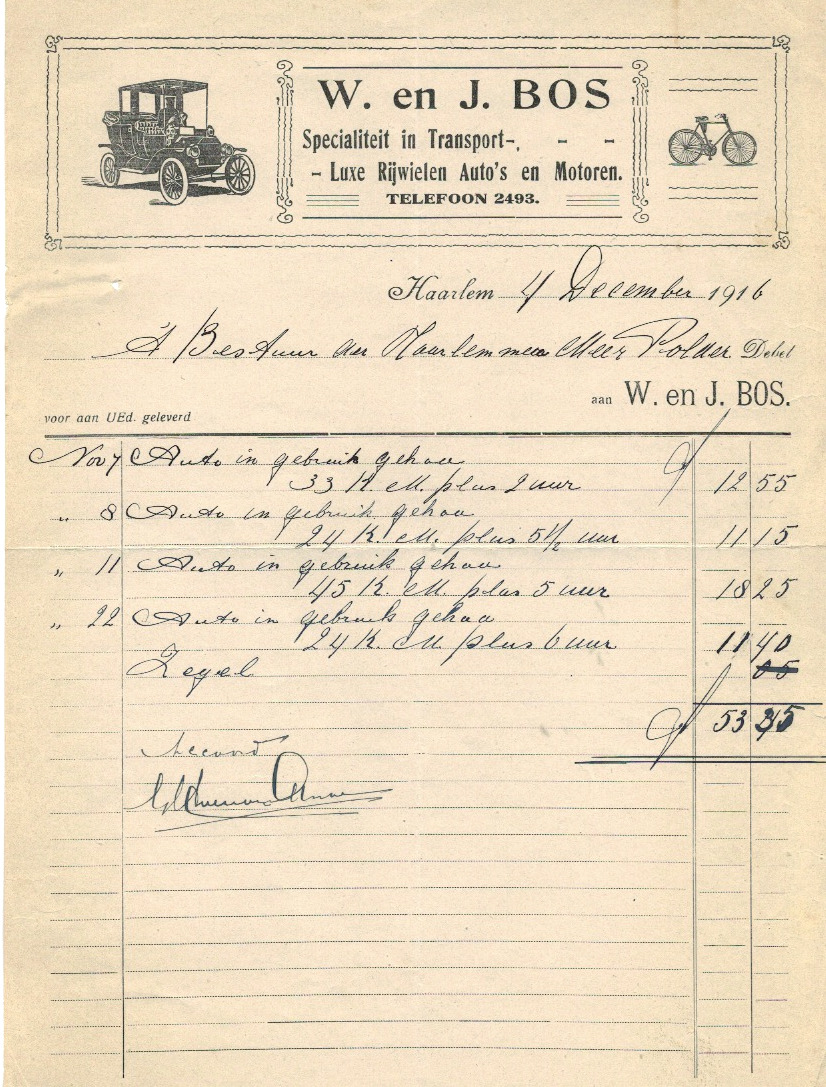 W. en J. BOS
Specialiteit in Transport-, - -
- Luxe Rijwielen Auto's en Motoren.
TELEFOON 2493.
Haarlem 4 December 1916
Bestuur der Haarlemmer Meer Polder Debet
aan W. en J. BOS.
voor aan UEd. geleverd
Nov 7 Auto in gebruik gehad
33 K. M. plus 2 uur 12 55
" 8 Auto in gebruik gehad
24 K. M. plus 5 1/2 uur 11 15
" 11 Auto in gebruik gehad
45 K. M. plus 5 uur 18 25
" 22 Auto in gebruik gehad
24 K. M. plus 6 uur 11 40
Zegel 05
53 35
Accoord